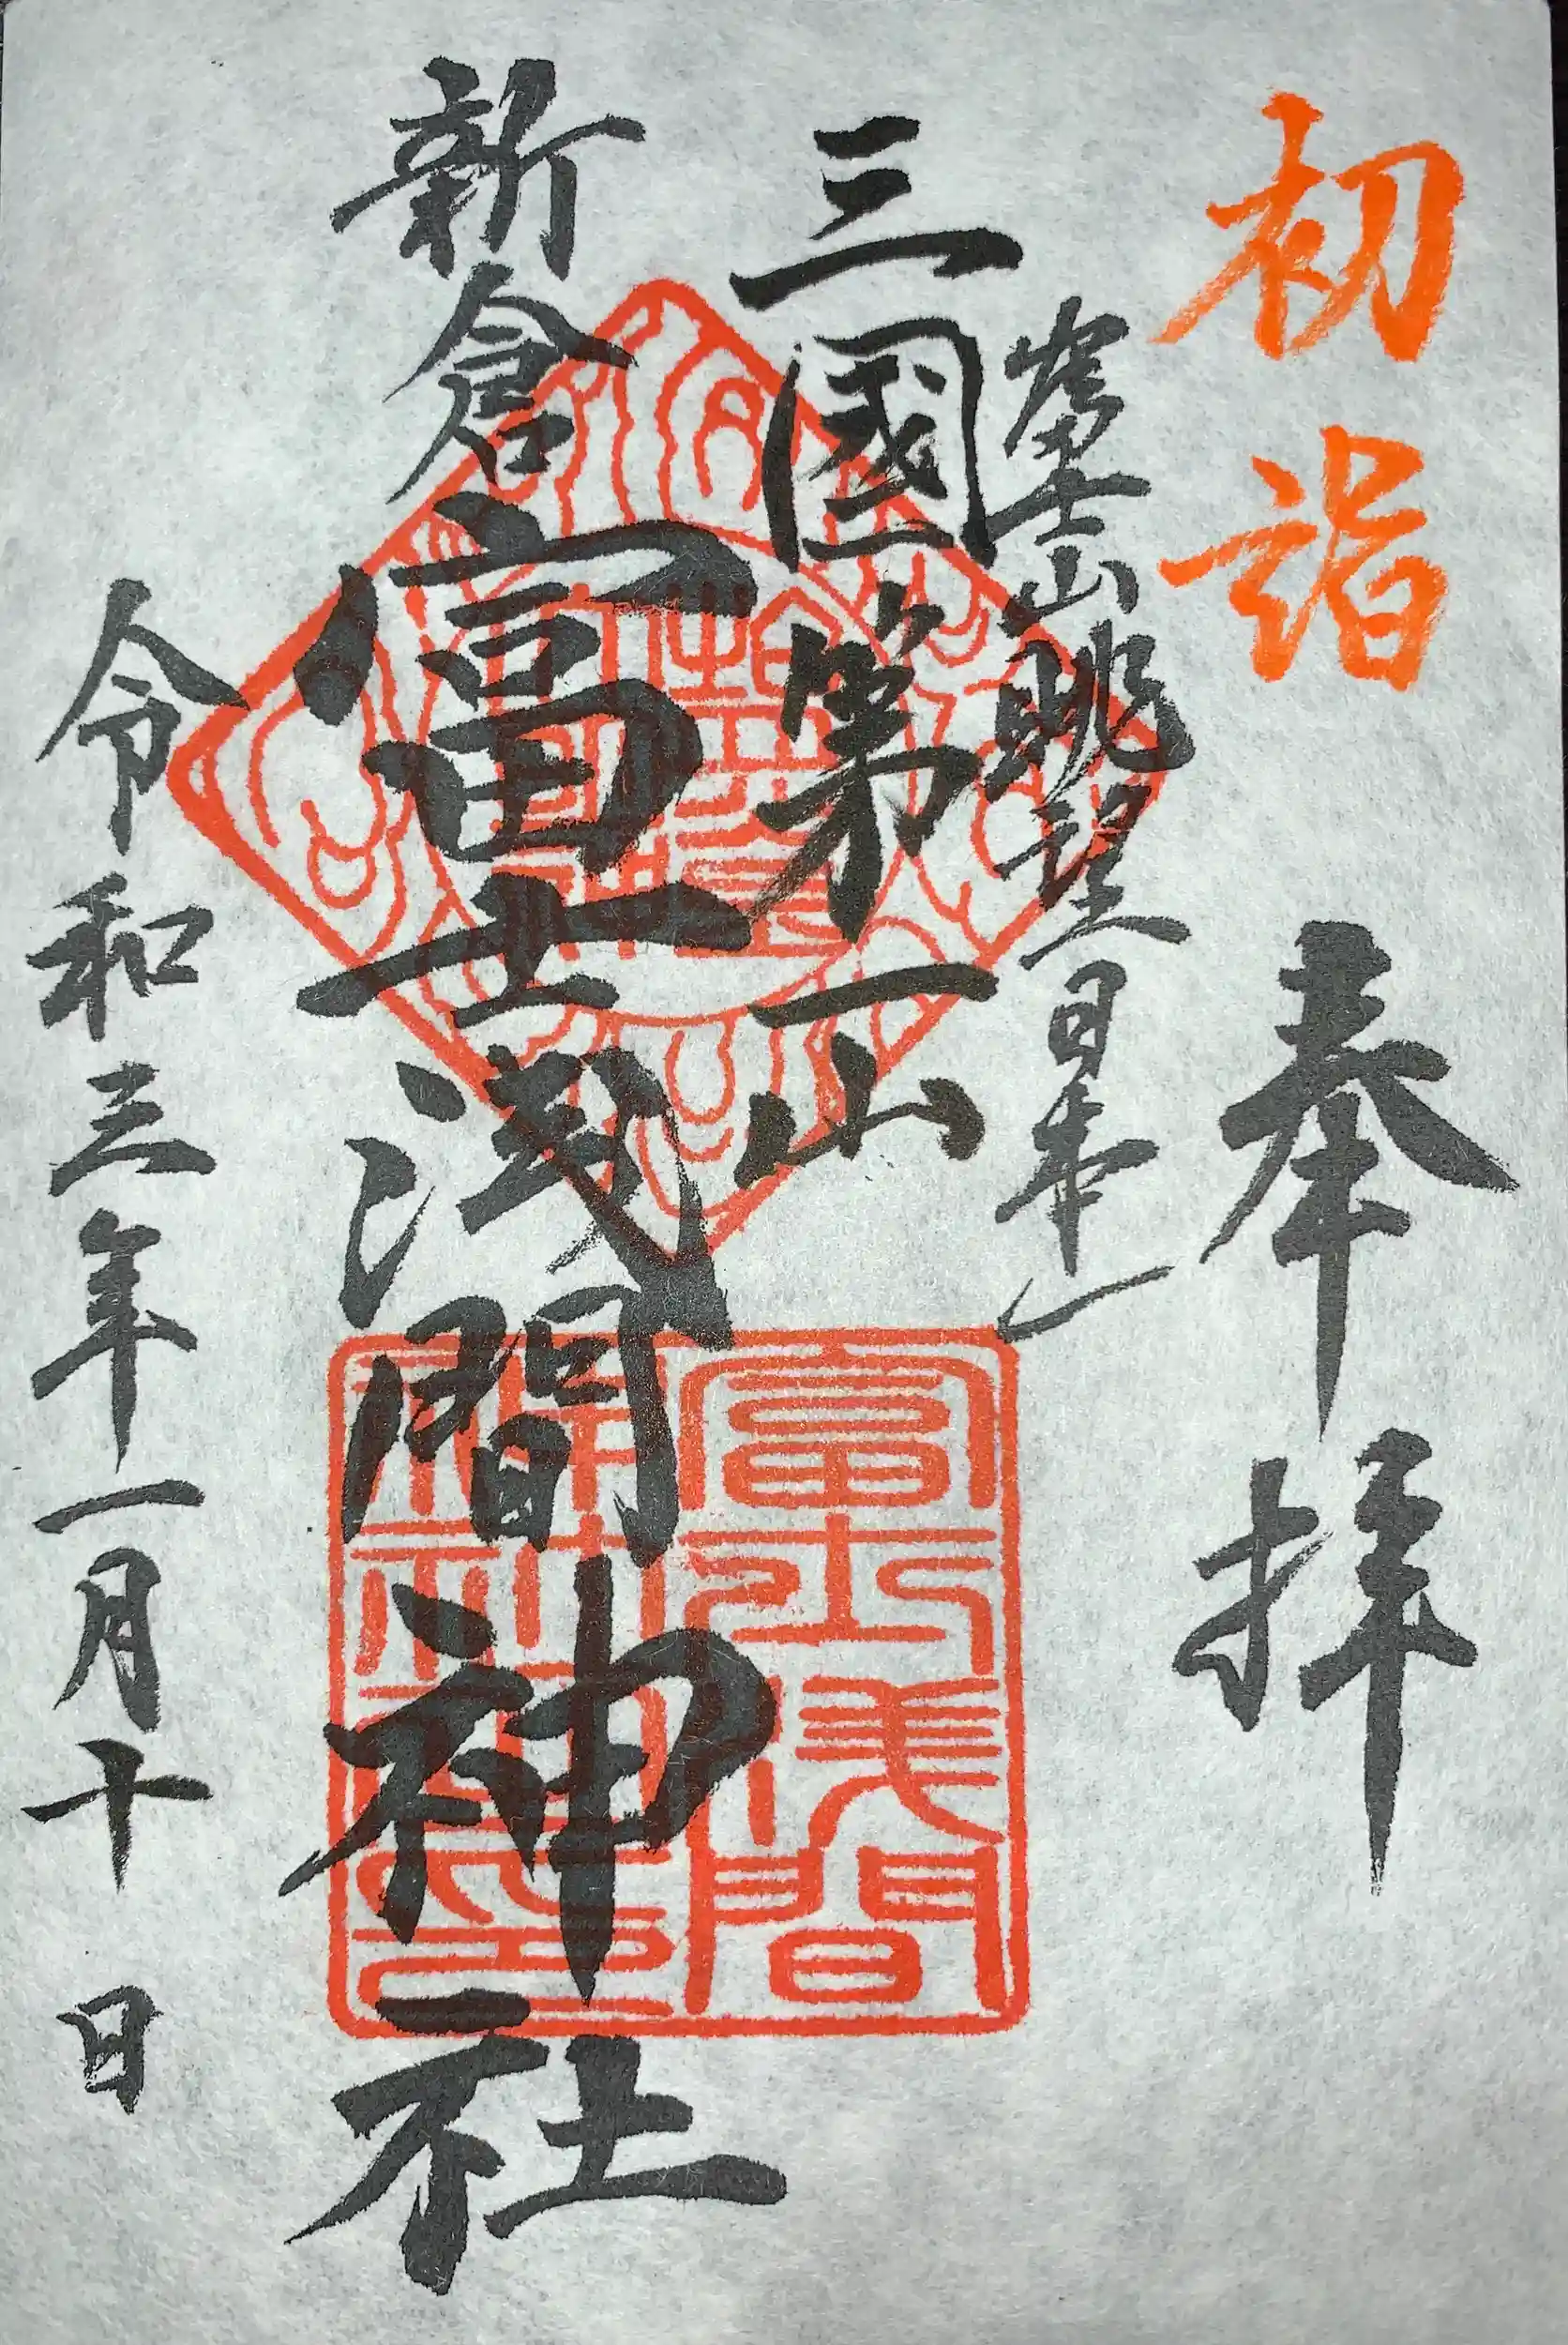 初詣
奉拝
富士山眺望日本一
三國第一山
新倉富士浅間神社
令和三年一月十日
富士浅間